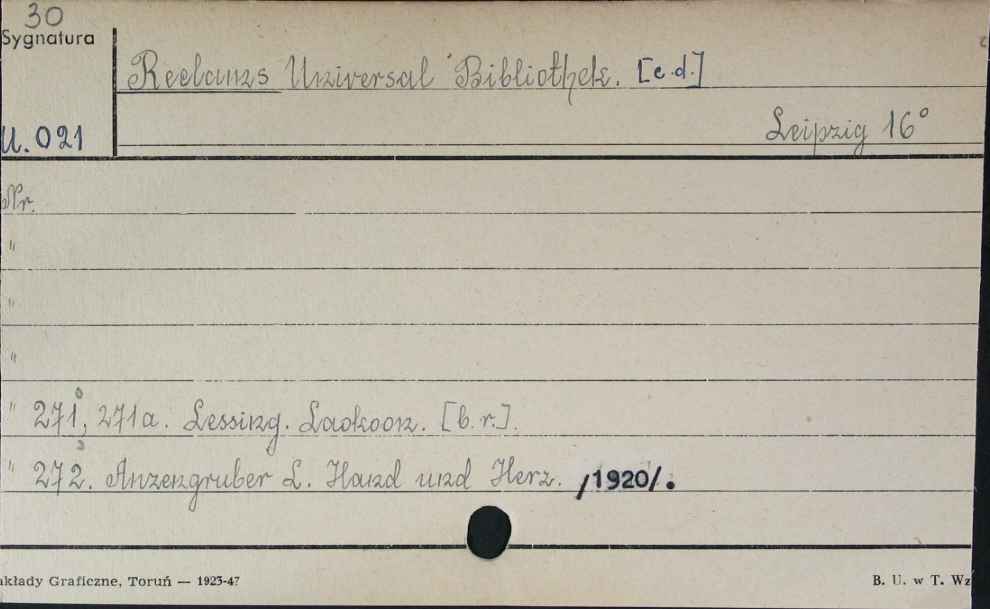 30
Sygnatura
Reclams Universal Bibliothek. [c.d.]
U. 021
Leipzig 16°
Nr.
"
"
"
" 271, 271a. Lessing. Laokoon. [b.r.].
" 272. Anzengruber L. Hand und Herz. /1920/.
akłady Graficzne, Toruń — 1923-47
B. U. w T. Wz